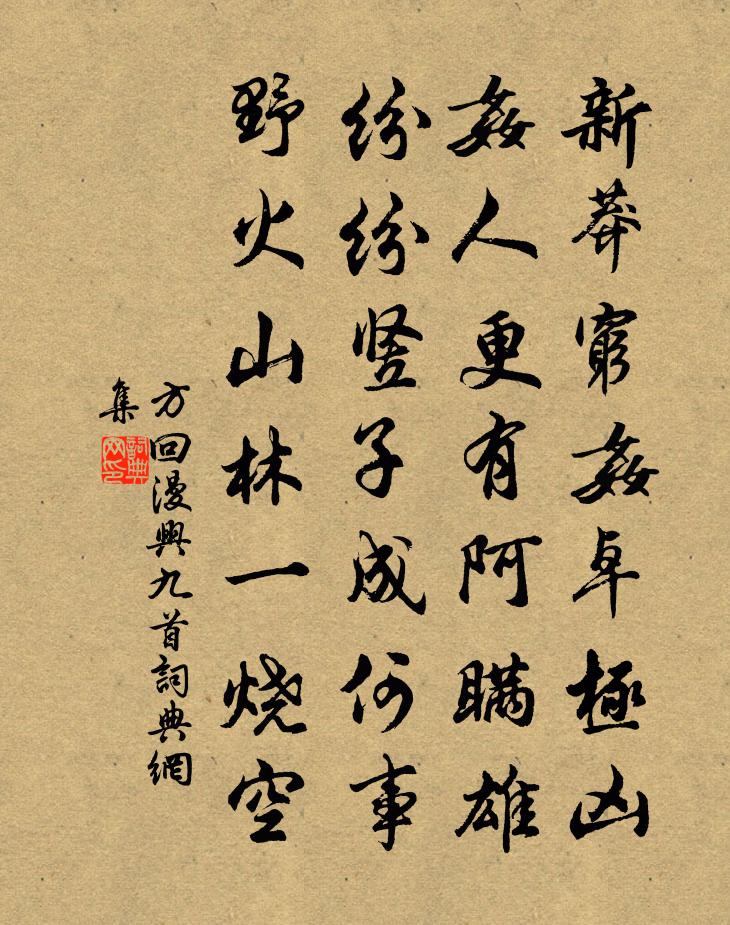 新莽窮姦卓極凶
姦人更有阿瞞雄
纷纷竖子成何事
野火山林一烧空
方回漫興九首詞典網
集
詞典网印